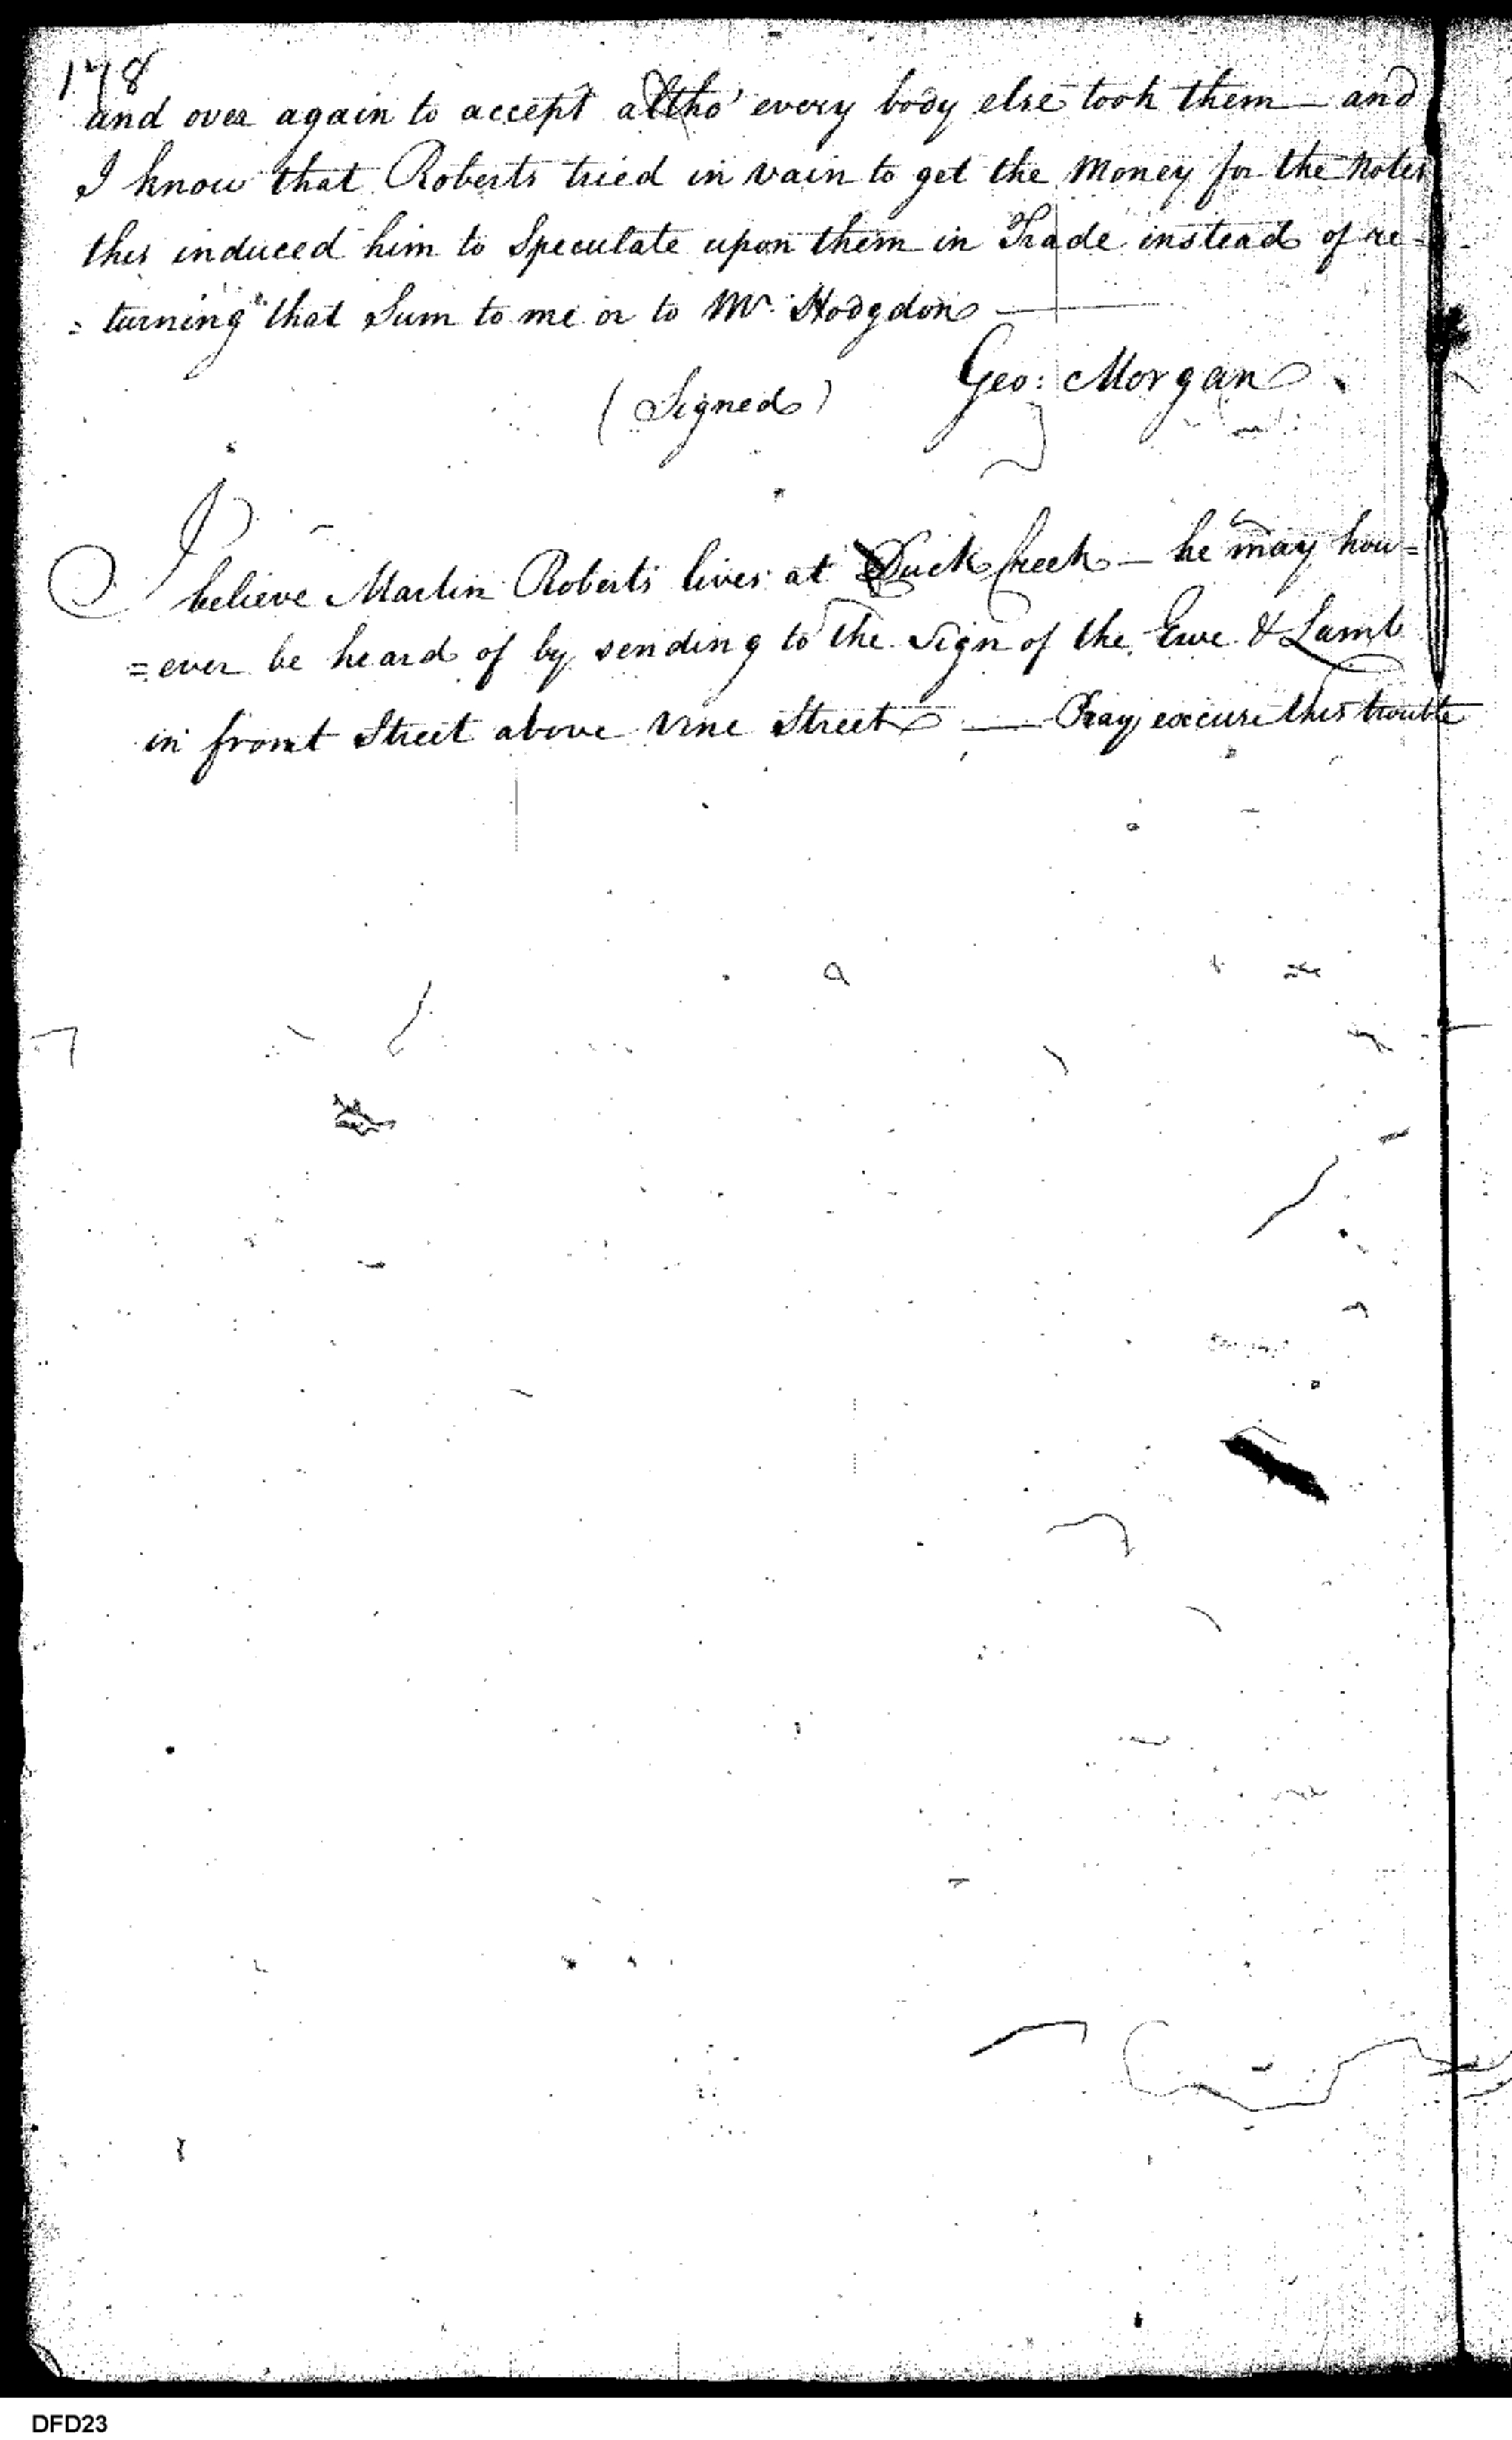 178
and over again to accept altho' every body else took them — and
I know that Roberts tried in vain to get the Money for the Notes
this induced him to Speculate upon them in Trade instead of re-
=turning that Sum to me or to Mr. Hodgdon —
(Signed) Geo: Morgan
I believe Martin Roberts lives at Duck Creek — he may how=
=ever be heard of by sending to the Sign of the Ewe & Lamb
in front Street above Vine Street — Pray excuse this trouble
DFD23